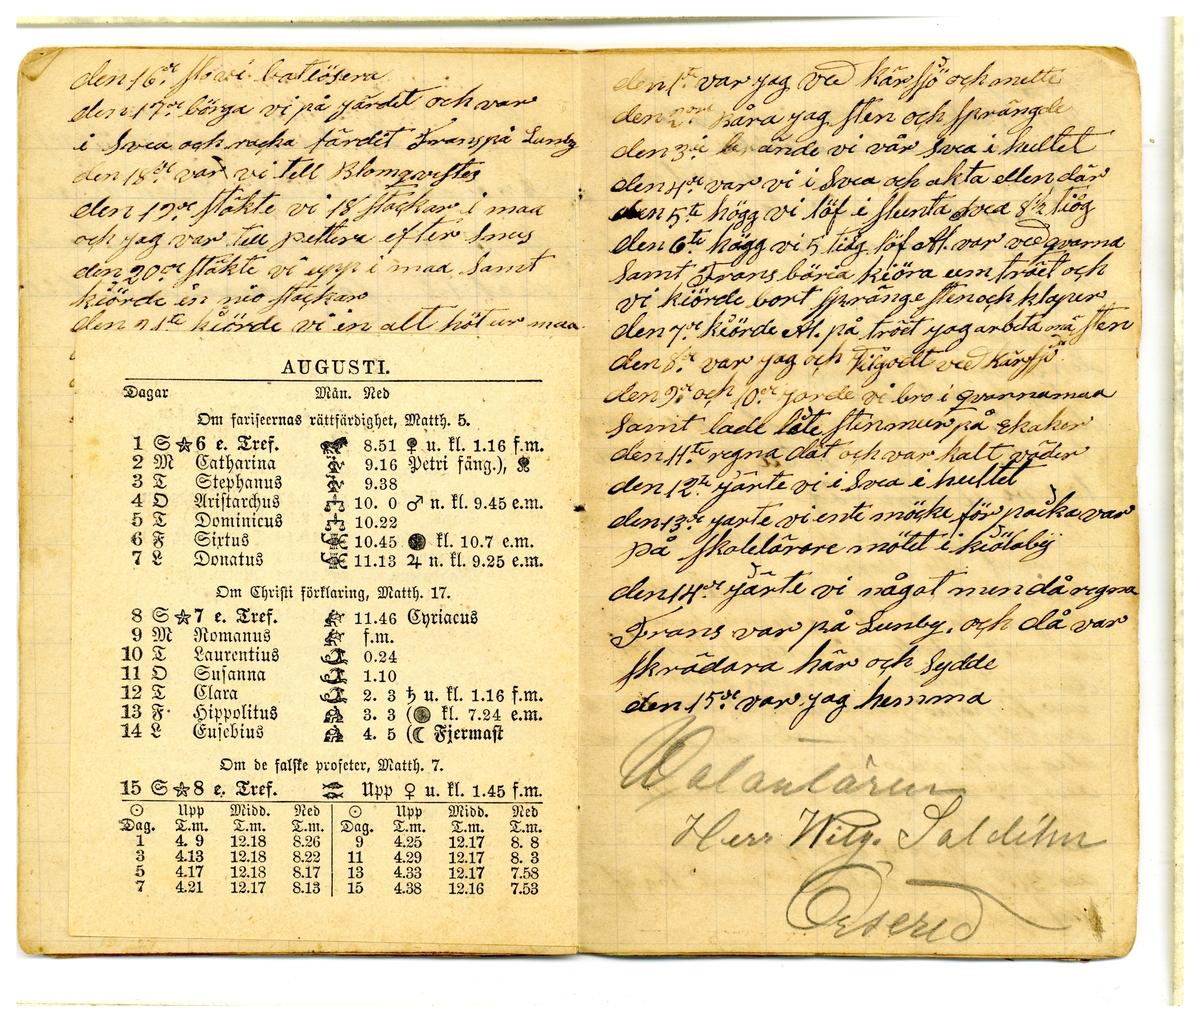 den 16de slog vi
den 17de börga vi på järdet och var
i Svea och racka färdit Frans på Lunby
den 18de var vi tell Blomqvistes
den 19de stäkte vi 18 stackar i maa
och jag var tell petters efter Snus
den 20de stäkte vi upp i maa Samt
kiörde in nio stackar
den 21te kiörde vi in alt höt ur maa
AUGUSTI.
Dagar Mån. Ned
Om fariseernas rättfärdighet, Matth. 5.
1 S ☆ 6 e. Tref. 8.51 ♀ u. kl. 1.16 f.m.
2 M Catharina 9.16 Petri fäng.),
3 T Stephanus 9.38
4 O Aristarchus 10. 0 ♂ n. kl. 9.45 e.m.
5 T Dominicus 10.22
6 F Sixtus 10.45 kl. 10.7 e.m.
7 L Donatus 11.13 ♃ n. kl. 9.25 e.m.
Om Christi förklaring, Matth. 17.
8 S ☆ 7 e. Tref. 11.46 Cyriacus
9 M Romanus f.m.
10 T Laurentius 0.24
11 O Susanna 1.10
12 T Clara 2. 3 ♄ u. kl. 1.16 f.m.
13 F Hippolitus 3. 3 ( kl. 7.24 e.m.
14 L Eusebius 4. 5 (☾ Fjermast
Om de falske profeter, Matth. 7.
15 S ☆ 8 e. Tref. Upp ♀ u. kl. 1.45 f.m.
☉ Upp Midd. Ned ☉ Upp Midd. Ned
Dag. T.m. T.m. T.m. Dag. T.m. T.m. T.m.
1 4. 9 12.18 8.26 9 4.25 12.17 8. 8
3 4.13 12.18 8.22 11 4.29 12.17 8. 3
5 4.17 12.18 8.17 13 4.33 12.17 7.58
7 4.21 12.17 8.13 15 4.38 12.16 7.53
den 1te var jag ved Kärsjö och mette
den 2dre Båra jag Sten och Sprängde
den 3de ände vi vår Svea i hultet
den 4de var vi i Svea och akta ellen där
den 5te högg vi löf i Svea 8 1/2 tiog
den 6te högg vi 5 tiog löf Al. var ved qvarna
Samt Frans böria kiöra um tröet och
vi kiörde bort Spränge sten och klaper
den 7de kiörde Al. på tröet jag arbeta mä sten
den 8de var jag och ved Kärsjö
den 9de och 10de jorde vi bro i qvarnamaa
Samt lade låte stenmur på ekaker
den 11te regna dät och var kalt väder
den 12te järte vi i Svea i hultet
den 13de jarte vi ente möcke för packa var
på skolelärare mötet i kiölaby
den 14de järte vi något men då regna
Frans var på Lunby. och då var
skrädara här och Sydde
den 15de var jag hemma
Volantären
Herr Wilg. Saldéhn
Öxered